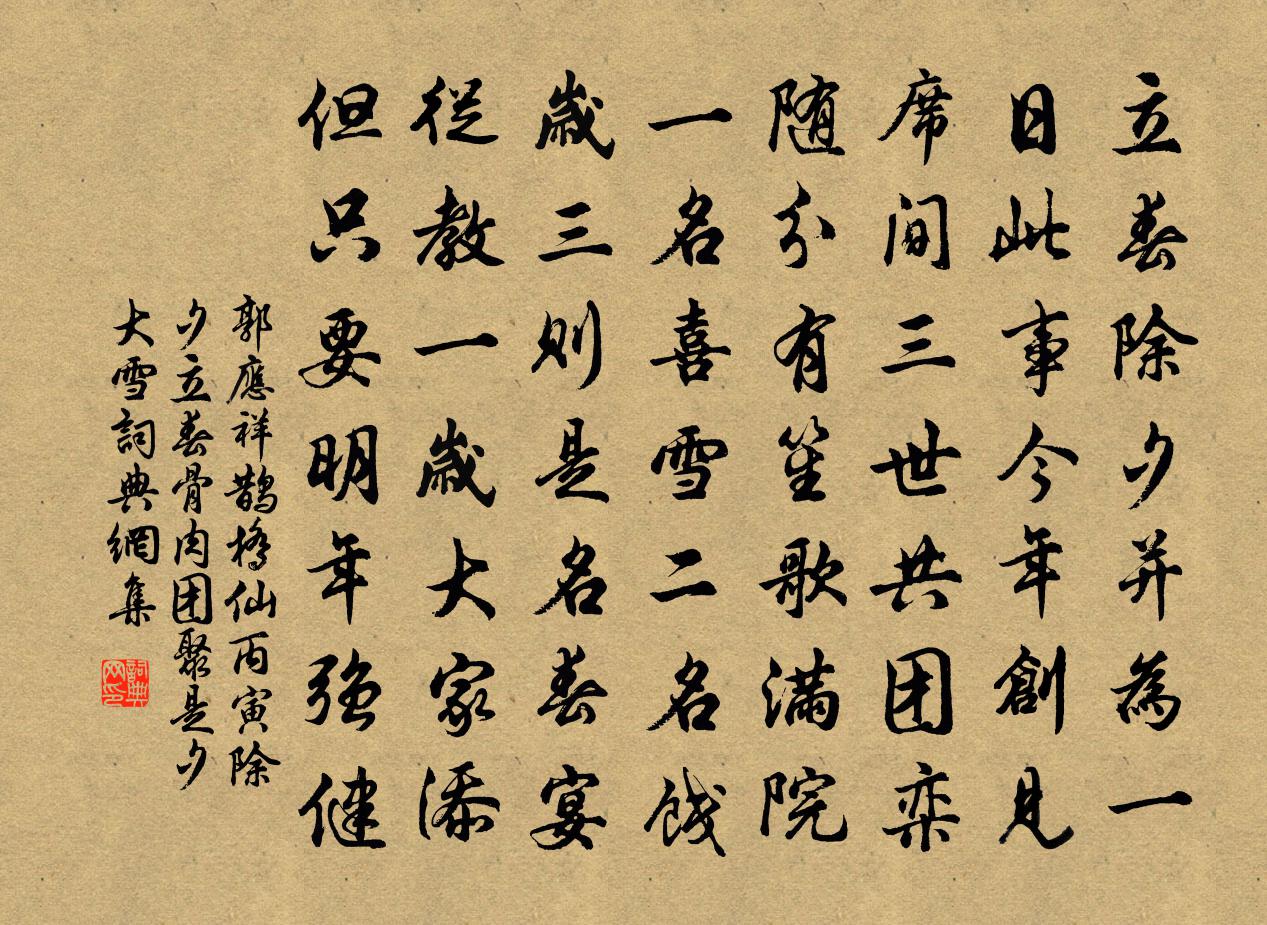 立春除夕并為一
日此事今年創見
席间三世共团栾
随分有笙歌滿院
一名喜雪二名饯
歲三则是名春宴
從教一歲大家添
但只要明年强健
郭應祥鵲橋仙丙寅除
夕立春骨肉团聚是夕
大雪詞典網集
詞典网印